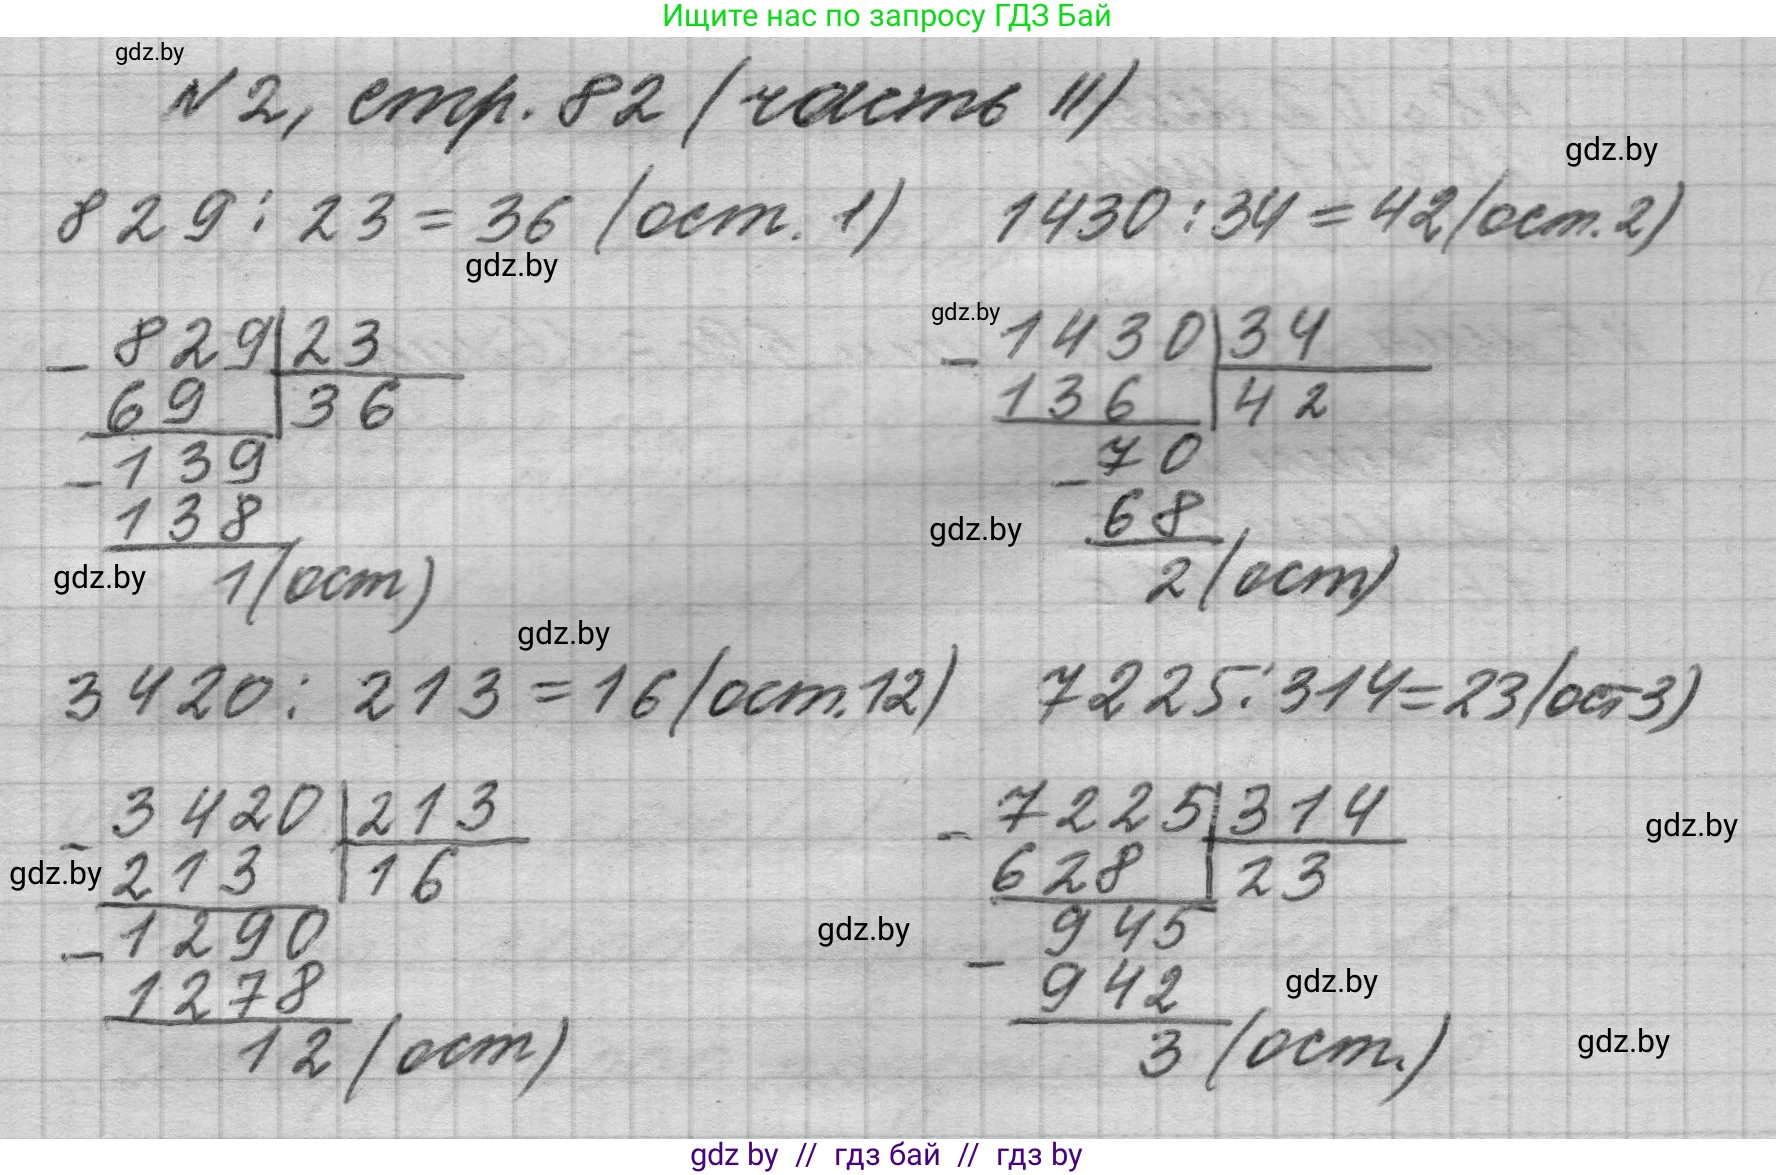 Ищите нас по запросу ГДЗ Бай
gdz.by
№2, стр. 82 (часть II)
gdz.by
829 : 23 = 36 (ост. 1) 1430 : 34 = 42 (ост. 2)
gdz.by
gdz.by
- 829 | 23
69 | 36
- 139
138
gdz.by 1 (ост)
- 1430 | 34
136 | 42
- 70
gdz.by 68
2 (ост)
gdz.by
3420 : 213 = 16 (ост. 12) 7225 : 314 = 23 (ост 3)
- 3420 | 213
gdz.by 213 | 16
- 1290
1278
12 (ост)
- 7225 | 314 gdz.by
628 | 23
gdz.by
945
- 942 gdz.by
3 (ост.) gdz.by
gdz by // гдз бай // гдз by